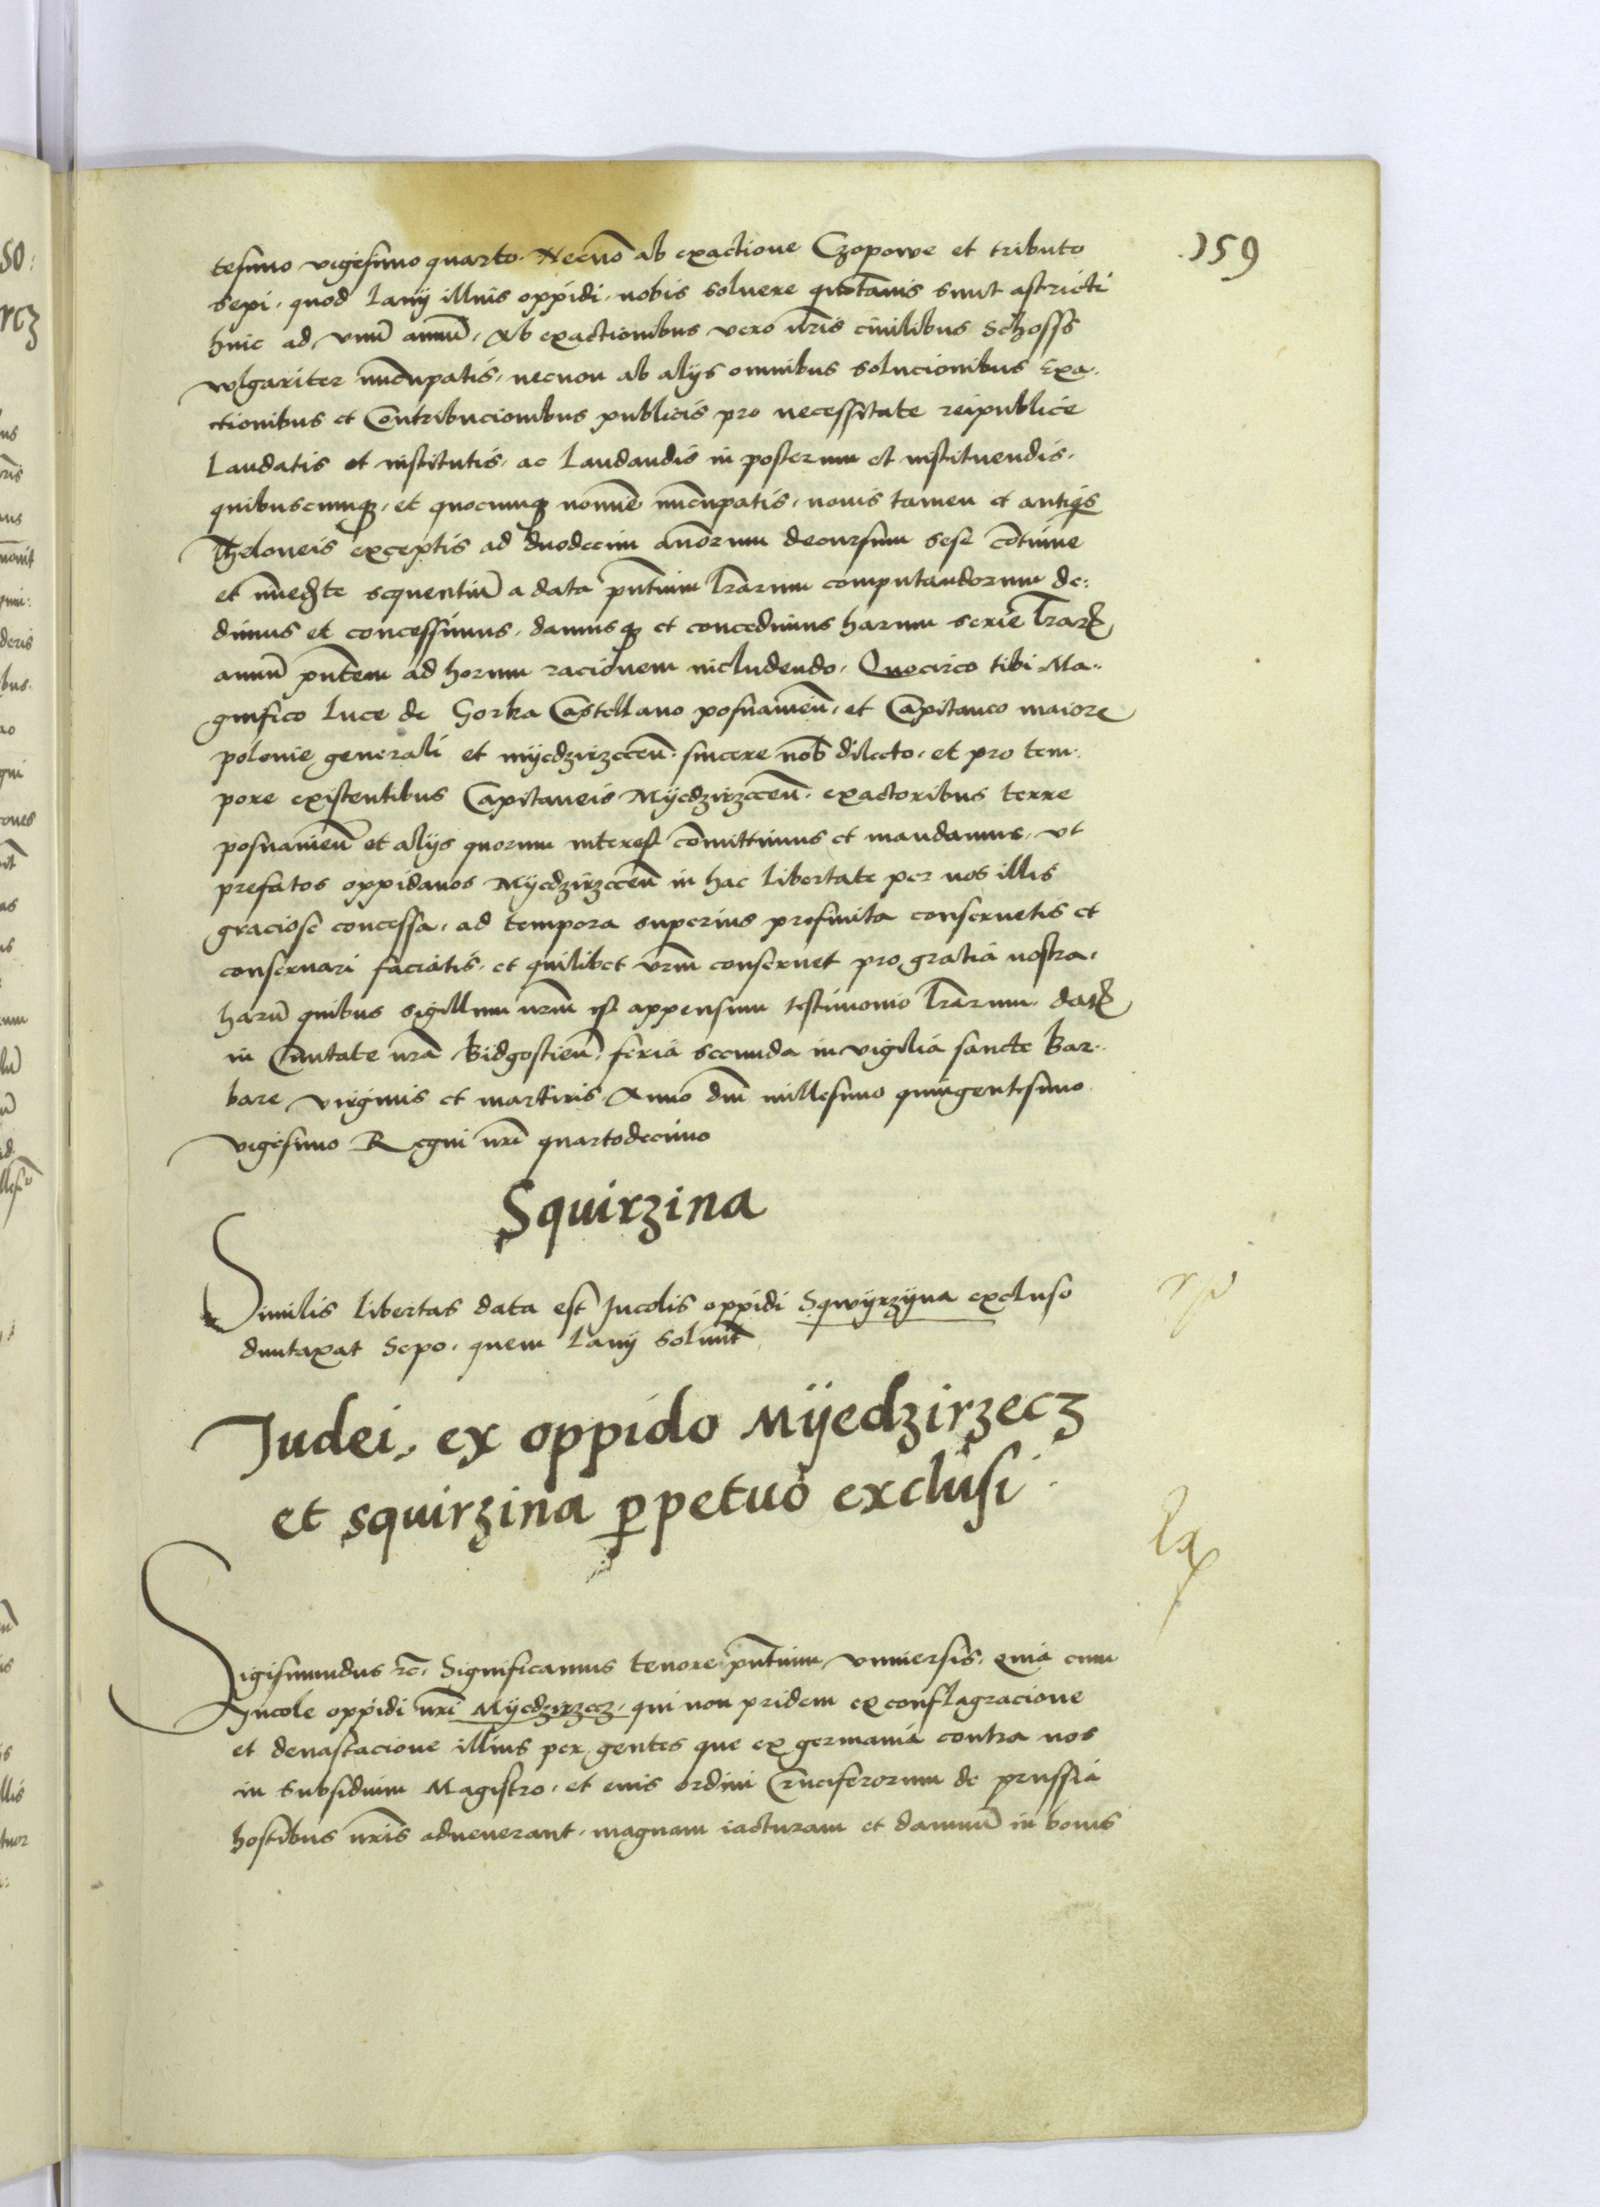 159
tesimo vigesimo quarto. Necnō ab exactione Czopowe et tributo
sepi, quod lanij illius oppidi, nobis soluere quotānis sunt astricti
hinc ad vnū annū, Ab exactionibus vero nr̄is ciuilibus Schoss
wlgariter nūcupatis, necnon ab alijs omnibus solucionibus Exa-
ctionibus et Contribucionibus publicis pro necessitate reipublice
Laudatis et institutis, ac Laudandis in posterum et instituendis,
quibuscunqȝ, et quocunqȝ nomīe nūcupatis, nouis tamen et antiqs
Theloneis exceptis ad duodecim annorum decursum sese cōtinue
et īmediate sequentiū a data pn̄tium lr̄arum computandorum de-
dimus et concessimus, damusqȝ et concedimus harum serie lr̄arꝝ
annū pn̄tem ad horum racionem includendo, Quocirca tibi Ma-
gnifico Luce de Gorka Castellano posnanień, et Capitaneo maioris
polonie generali et mijedzirzeceń. sincere nob̄ dilecto, et pro tem-
pore existentibus Capitaneis Mijedzirzeceń. exactoribus terre
posnanień et alijs quorum interest cōmittimus et mandamus, vt
prefatos oppidanos Mijedzirzeceń in hac libertate per nos illis
graciose concessa, ad tempora superius prefinita conseruetis et
conseruari faciatis, et quilibet vr̄m conseruet pro gratia nostra,
harū quibus sigillum nr̄m est appensum testimonio lr̄arum. datꝝ
in Ciuitate nr̄a Bidgostień, feria secunda in vigilia sancte Bar-
bare virginis et martiris, Anno dn̄i millesimo quingentesimo
vigesimo Regni nr̄i quartodecimo
Squirzina
Similis libertas data est Incolis oppidi Sqwijrzijna excluso
duntaxat Sepo, quem lanij soluūt
Judei, ex oppido Mijedzirzecz
et squirzina ꝑpetuo exclusi
Sigismundus rc̄, Significamus tenore pn̄tium, vniuersis, quia cum
Incole oppidi nr̄i Mijedzirzecz, qui non pridem ex conflagracione
et deuastacione illius per gentes que ex germania contra nos
in Subsidium Magistro, et eius ordini Cruciferorum de prussia
hostibus nr̄is aduenerant, magnam iacturam et damnū in bonis